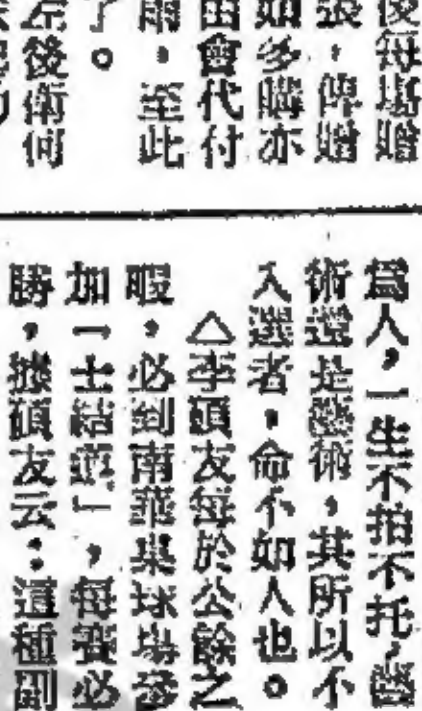 後每場贈
張，俾贈
如多購亦
由會代付
雨，至此
了。
左後衛何
爲人，一生不拍不托，藝
術還是藝術，其所以不
入選者，命不如人也。
△李碩友每於公餘之
暇，必到南華桌球場參
加「士結遊」，每賽必
勝，據碩友云：這種劃